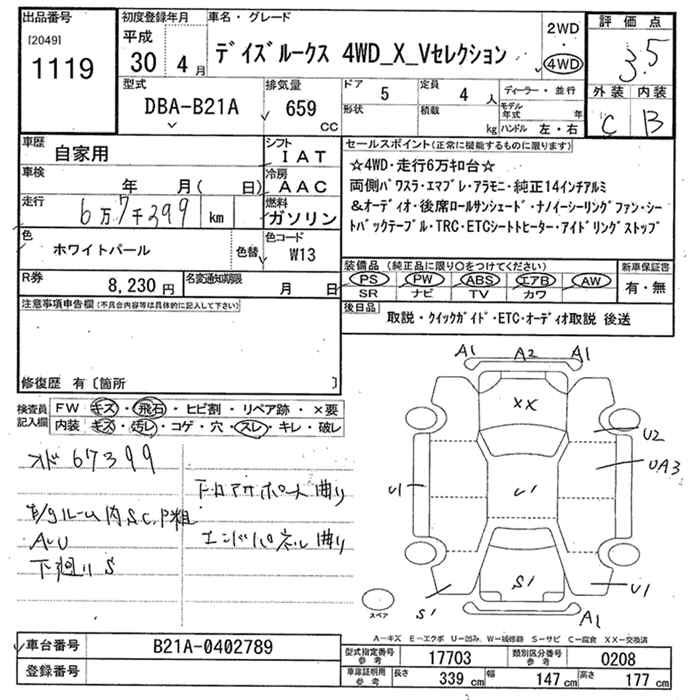 出品番号
[2049]
1119
初度登録年月
平成
30年 4月
車名・グレード
デイズルークス 4WD_X_Vセレクション
2WD
・
4WD
評価点
3.5
外装 内装
C B
型式
DBA-B21A
排気量
659 CC
ドア 5
形状
定員 4 人
積載 kg
ディーラー・並行
モデル年式 年
ハンドル 左・右
車歴
自家用
シフト
IAT
車検
年 月( 日)
冷房
AAC
走行
6万7千399 km
燃料
ガソリン
色
ホワイトパール
色替
色コード
W13
R券
8,230円
名変通知期限
月 日
セールスポイント(正常に機能するものに限ります)
☆4WD・走行6万キロ台☆
両側パワスラ・エマブレ・アラモニ・純正14インチアルミ
&オーディオ・後席ロールサンシェード・ナノイーシーリングファン・シー
トバックテーブル・TRC・ETCシートヒーター・アイドリングストップ
装備品(純正品に限り○をつけてください)
PS PW ABS エアB AW
SR ナビ TV カワ
新車保証書
有・無
後日品
取説・クイックガイド・ETC・オーディオ取説 後送
注意事項申告欄(不具合内容等は具体的に記入して下さい)
修復歴 有〔箇所 〕
検査員記入欄
FW キズ・飛石・ヒビ割・リペア跡・×要
内装 キズ・汚レ・コゲ・穴・スレ・キレ・破レ
メド 67399
下回りS
コアサポート曲り
エンドパネル曲り
A1 A2 A1
XX
U2
UA3
U1
U1
S1
S1
U1
A1
スペア
A-キズ E-エクボ U-凹み W-補修跡 S-サビ C-腐食 XX-交換済
車台番号
B21A-0402789
登録番号
型式指定番号 参考 17703
類別区分番号 参考 0208
車庫証明用 参考 長さ 339 cm 幅 147 cm 高さ 177 cm